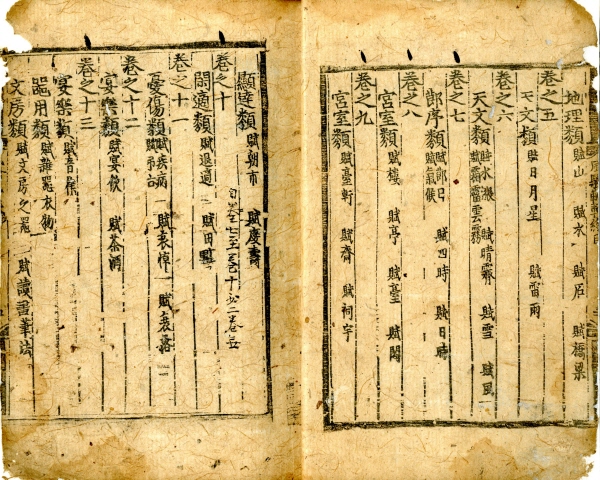 地理類 賦山 賦水 賦石 賦橋梁
卷之五
天文類 賦日月星 賦雷雨
卷之六
天文類 賦氷 賦霜雪雲霧 賦晴霽 賦雪 賦風
卷之七
節序類 賦節日 賦氣候 賦四時 賦日時
卷之八
宮室類 賦樓 賦亭 賦臺 賦閣
卷之九
宮室類 賦臺軒 賦齋 賦祠宇
顯達類 賦朝市 賦慶壽
卷之十
閑適類 賦退適 賦田野
卷之十一
憂傷類 賦疾病 賦哀悼 賦衰落
卷之十二
宴樂類 賦宴飲 賦茶酒
卷之十三
宴樂類 賦音樂
器用類 賦雜器衣物
文房類 賦文房之器 賦讀書筆法